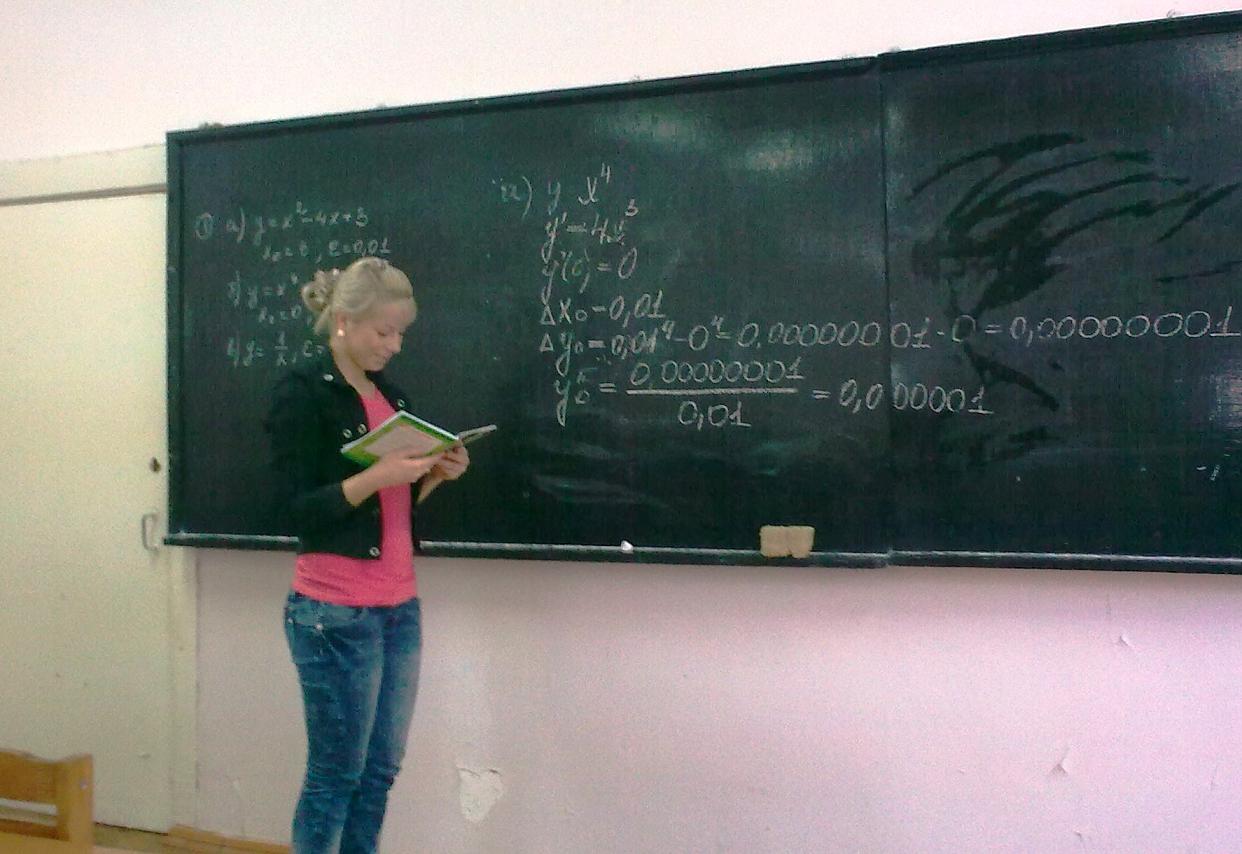 ① а) y=x²-4x+3
x₀=6, ε=0,01
б) y=x⁴
x₀=0
в) y=1/x, ε=
a) y x⁴
y'=4x³
y'(0)=0
Δx₀=0,01
Δy₀=0,01⁴-0⁴=0,00000001-0=0,00000001
0,00000001/0,01 = 0,000001